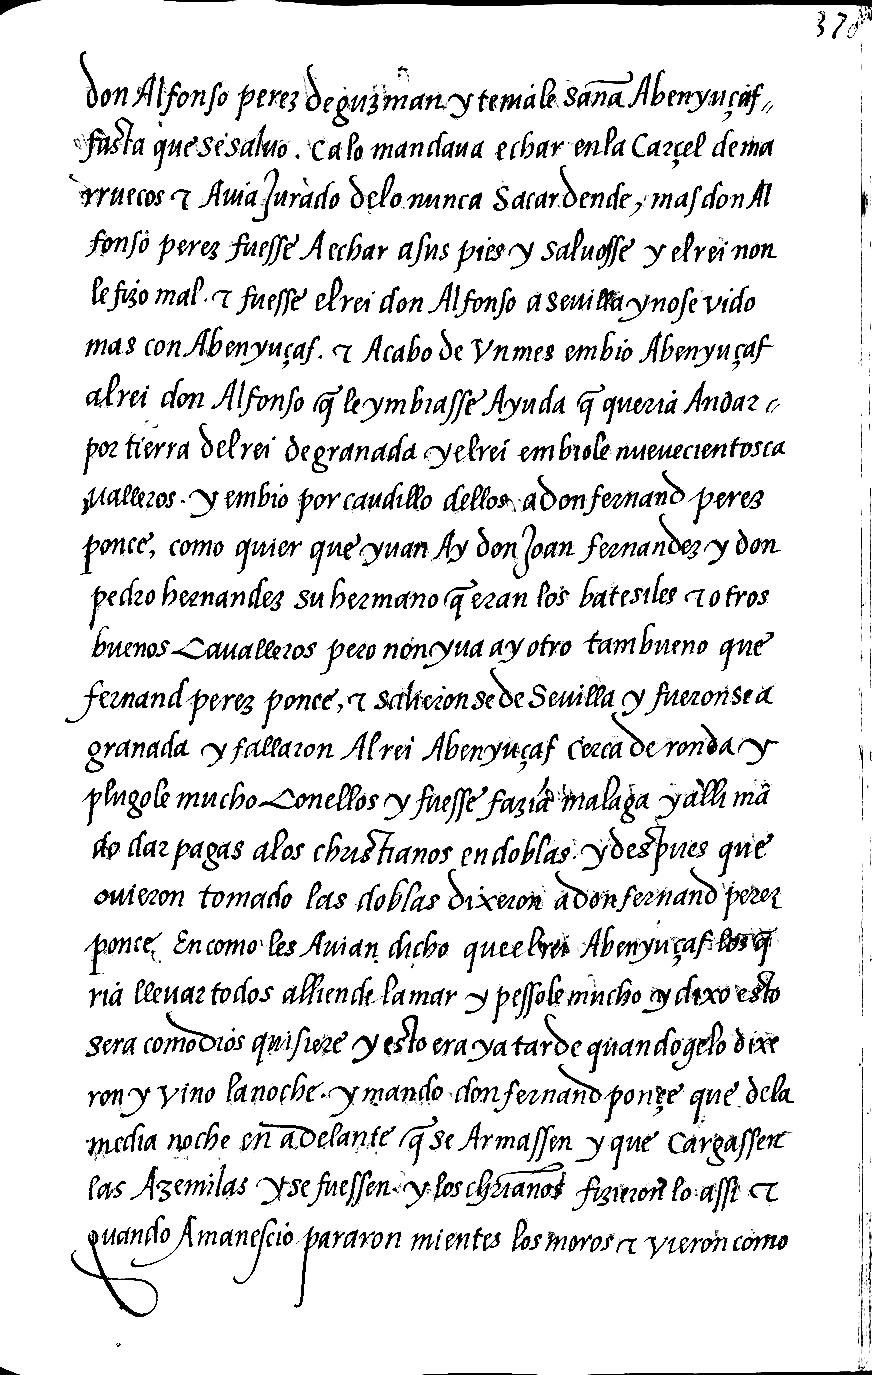 378
don Alfonso perez de guzman y temale saña Abenyuçaf
fasta que se saluo. Ca lo mandaua echar en la Carçel de ma
rruecos τ Auia Jurado de lo nunca Sacar dende, mas don Al
fonso perez fuesse A echar a sus pies y saluosse y el rei non
le fizo mal. τ fuesse el rei don Alfonso a Seuilla y no se vido
mas con Abenyuçaf. τ Acabo de Vn mes embio Abenyuçaf
al rei don Alfonso q̃ le ymbiasse Ayuda q̃ queria Andar
por tierra del rei de granada y el rei embiole nueuecientos ca
ualleros. y embio por caudillo dellos a don fernand perez
ponce, como quier que yuan Ay don Joan fernandez y don
pedro hernandez su hermano q̃ eran los batesiles τ otros
buenos Caualleros pero non yua ay otro tam bueno que
fernand perez ponce, τ salieronse de Seuilla y fueronse a
granada y fallaron Al rei Abenyuçaf cerca de ronda y
plugole mucho Con ellos y fuesse fazia malaga y alli mã
do dar pagas a los christianos en doblas. y despues que
ouieron tomado las doblas dixeron a don fernand perez
ponce, En como les Auian dicho que el rei Abenyuçaf los q̃
ria lleuar todos alliende la mar y pessole mucho y dixo esto
sera como Dios quisiere y esto era ya tarde quando gelo dixe
ron y vino la noche. y mando don fernand ponçe que de la
media noche en adelante q̃ se Armassen y que Cargassen
las Azemilas y se fuessen. y los chrianos fizieron lo assi τ
quando Amanescio pararon mientes los moros τ vieron como